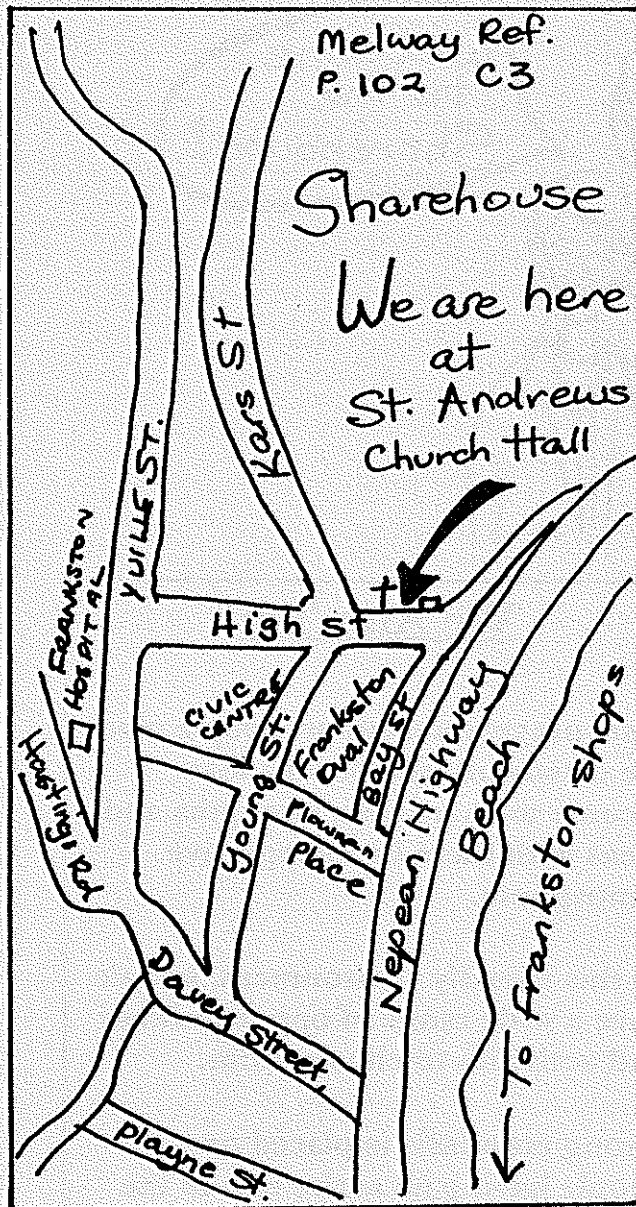 Melway Ref.
P. 102 C3
Sharehouse
We are here
at
St. Andrews
Church Hall
Kars St
YUILLE ST.
FRANKSTON
HOSPITAL
High St
CIVIC
CENTRE
Young St.
Frankston
Oval
Bay St
Plowman
Place
Nepean Highway
Beach
To Frankston Shops
Hastings Rd
Davey Street
Playne St.